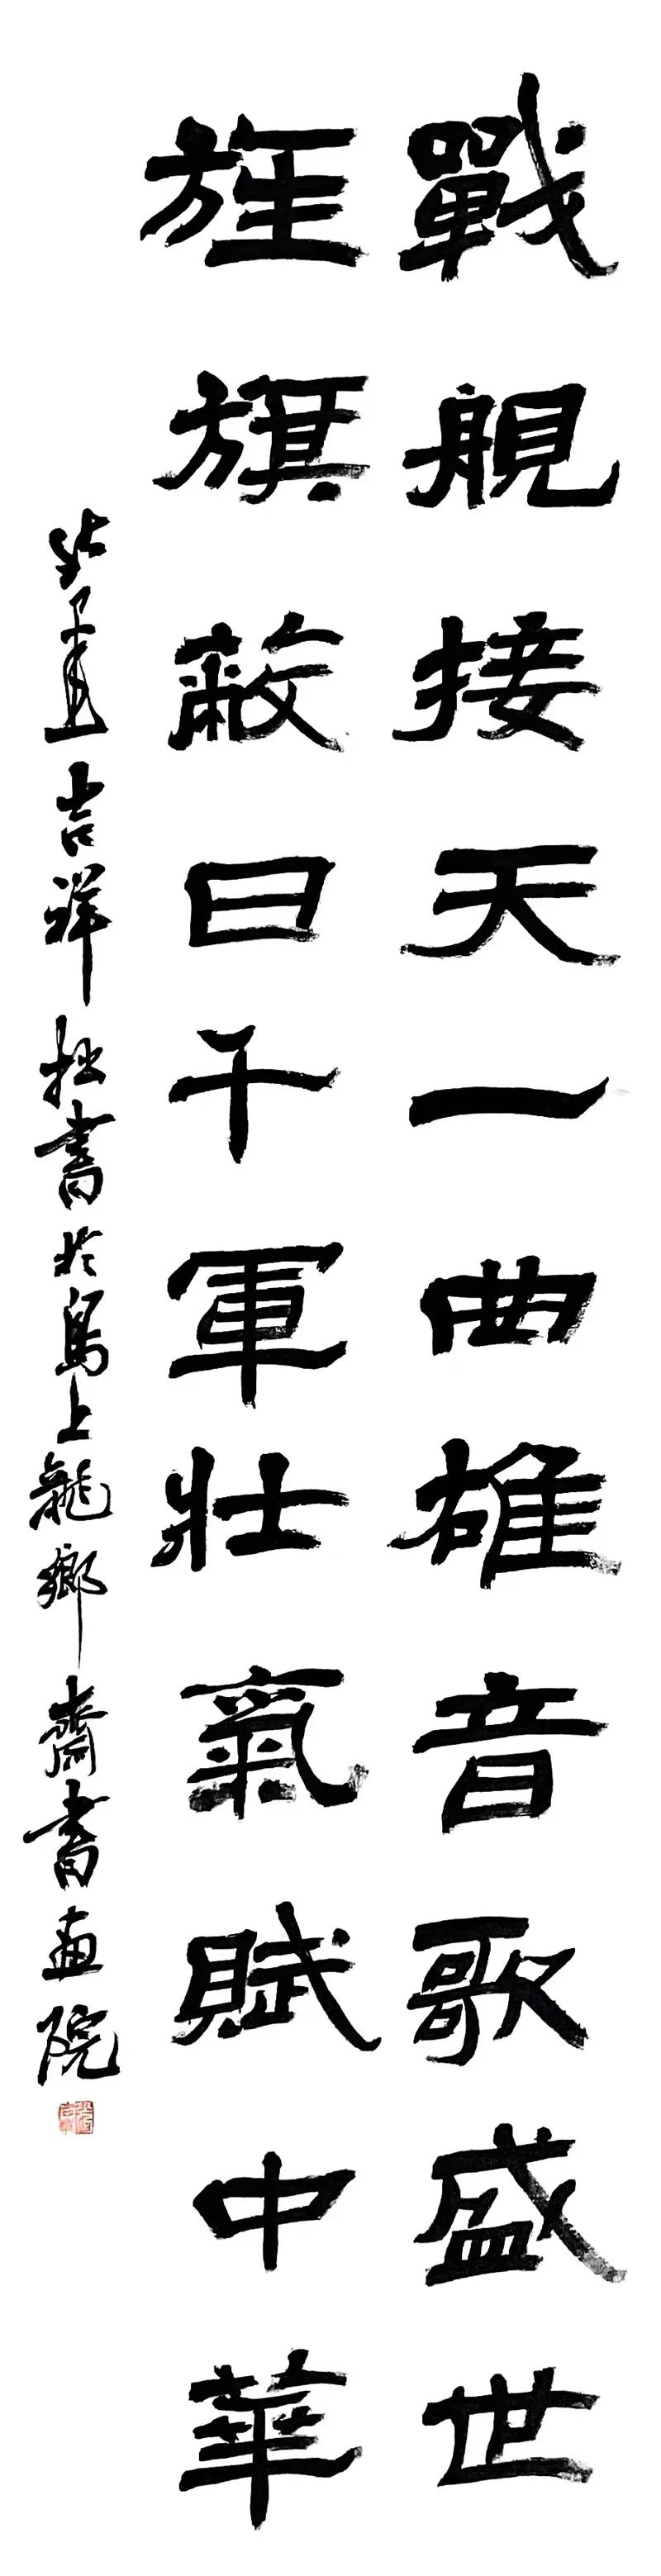 戰艦接天一曲雄音歌盛世
旌旗蔽日千軍壯氣賦中華
吉祥拙書於烏上龍鄉齋書畫院